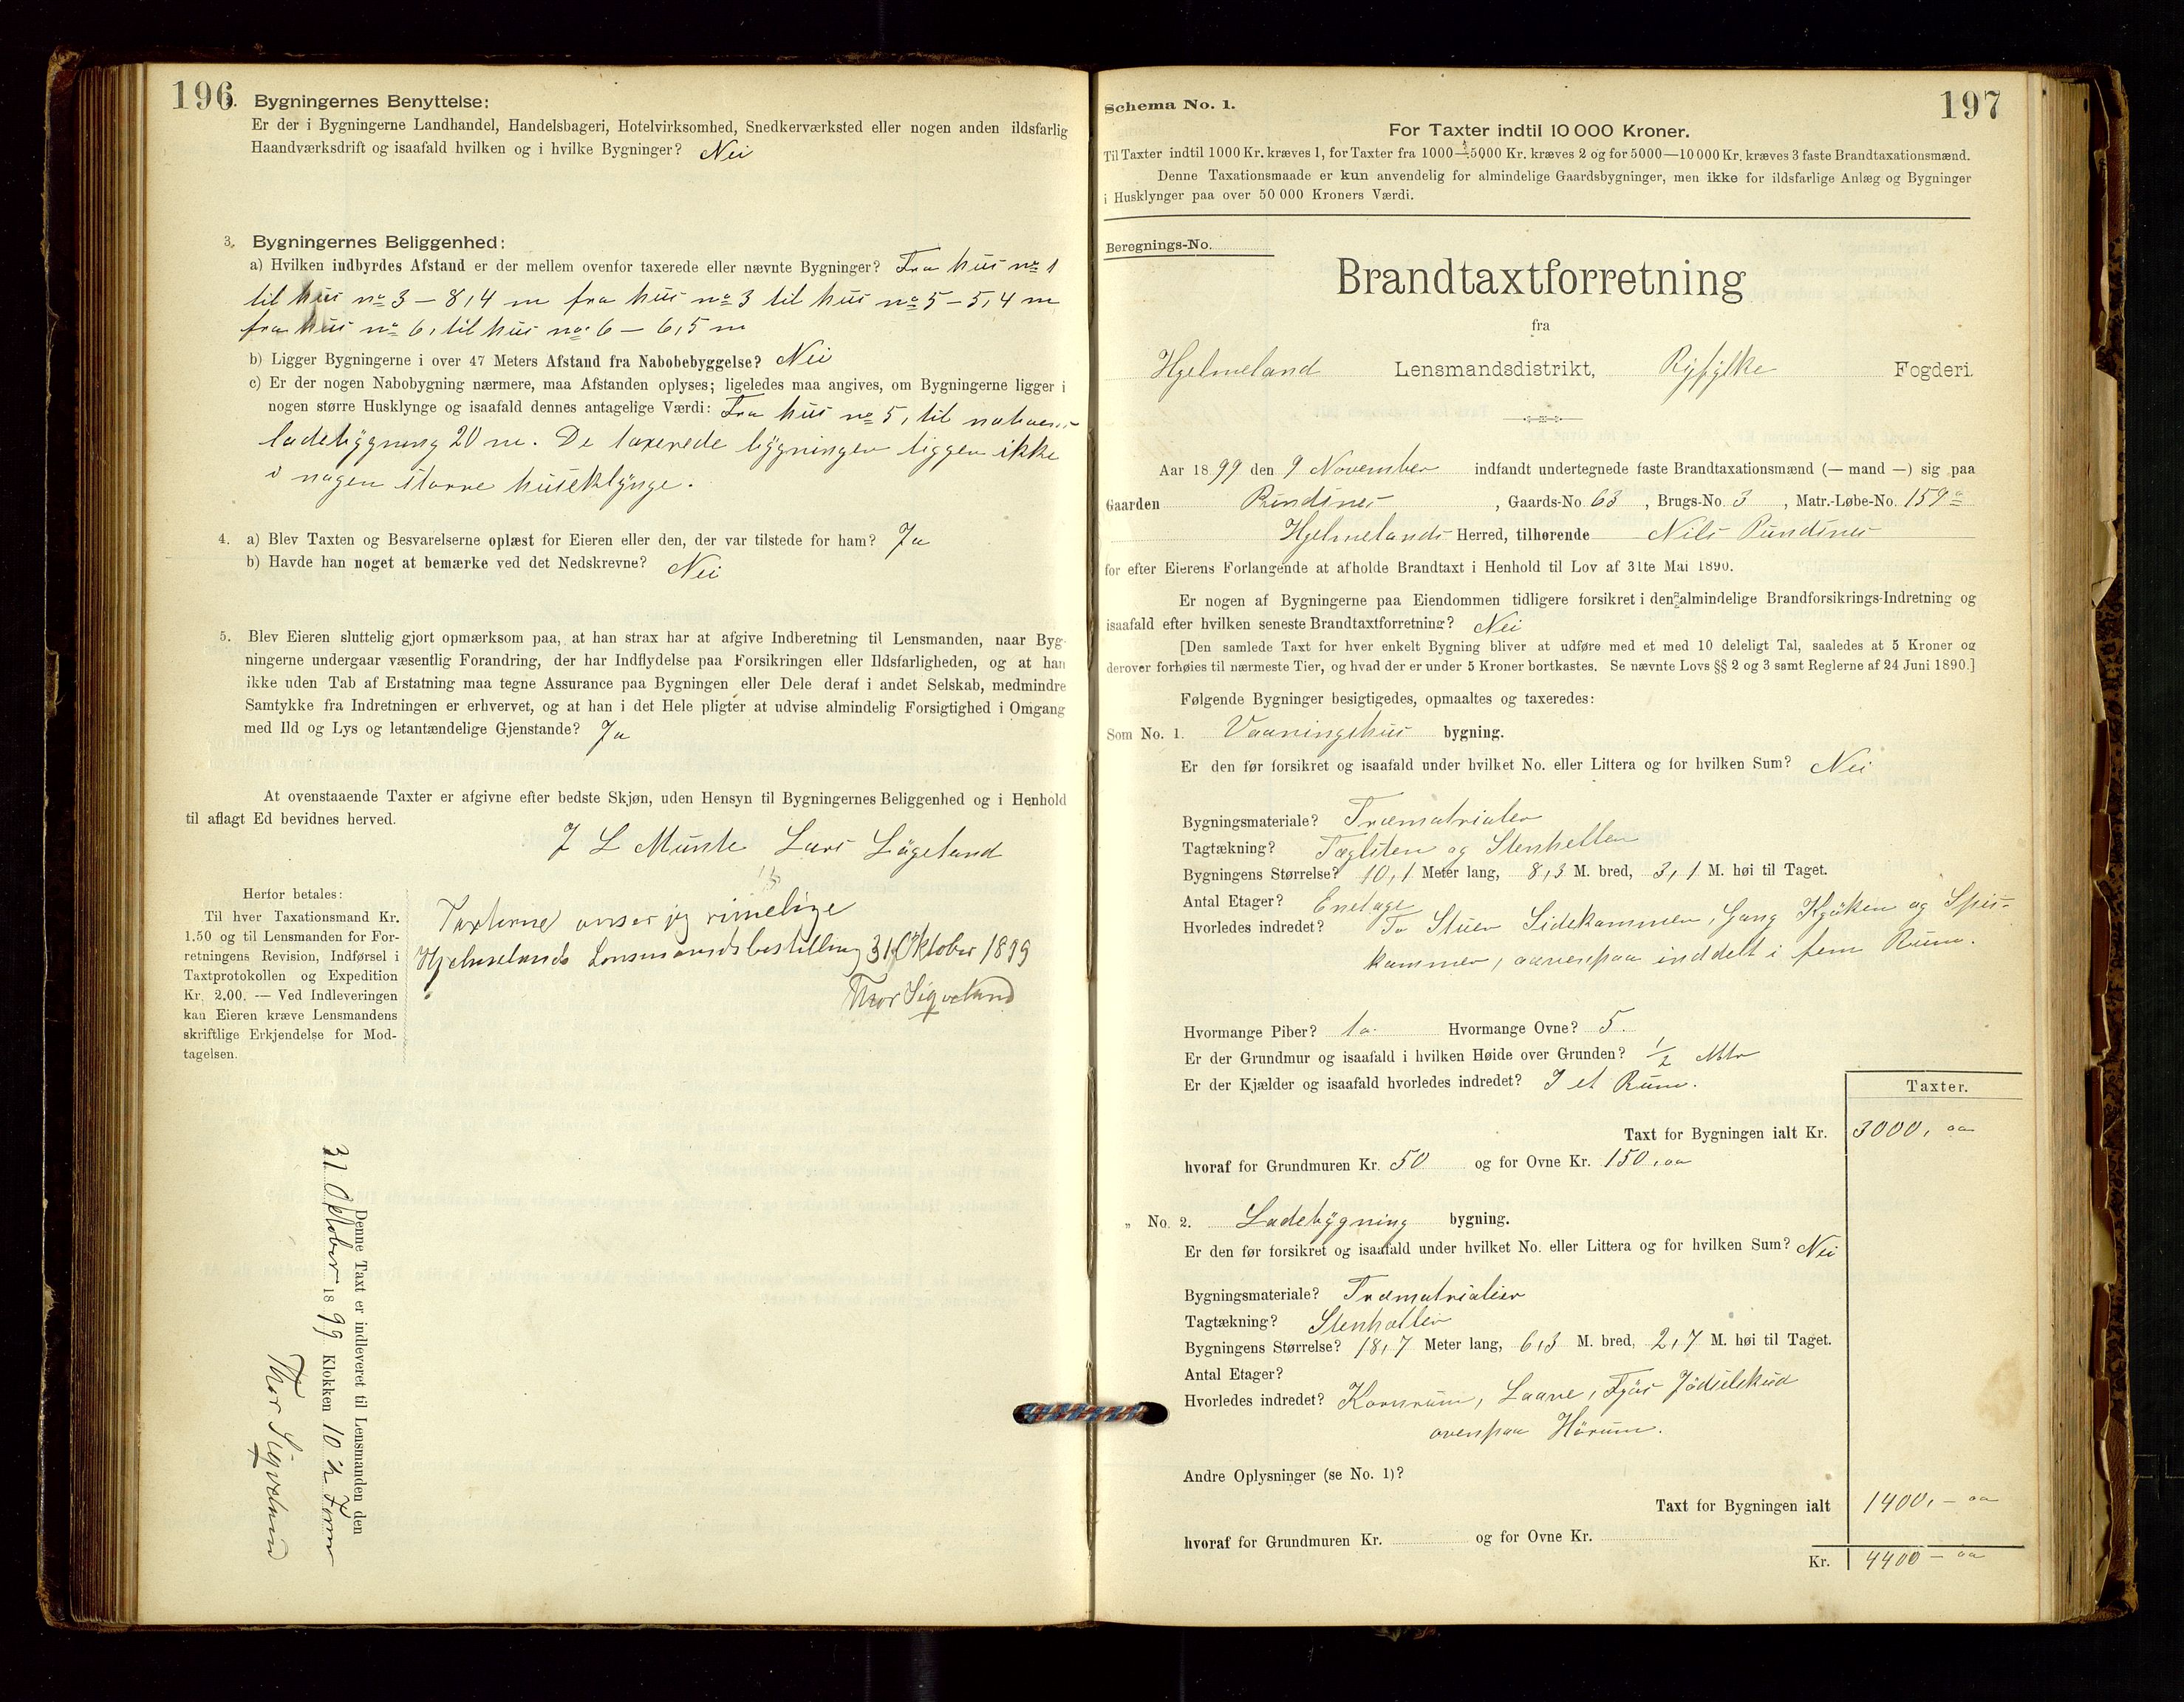 196
2. Bygningernes Benyttelse:
Er der i Bygningerne Landhandel, Handelsbageri, Hotelvirksomhed, Snedkerværksted eller nogen anden ildsfarlig
Haandværksdrift og isaafald hvilken og i hvilke Bygninger? Nei
3. Bygningernes Beliggenhed:
a) Hvilken indbyrdes Afstand er der mellem ovenfor taxerede eller nævnte Bygninger? Fra hus no 1
til hus no 3 – 8,4 m fra hus no 3 til hus no 5 – 5,4 m
fra hus no 6, til hus no 6 – 6,5 m
b) Ligger Bygningerne i over 47 Meters Afstand fra Nabobebyggelse? Nei
c) Er der nogen Nabobygning nærmere, maa Afstanden oplyses; ligeledes maa angives, om Bygningerne ligger i
nogen større Husklynge og isaafald dennes antagelige Værdi: Fra hus no 5, til
ladebÿgning 20 m. De taxerede bÿgninger ligger ikke
i nogen større huseklÿnge.
4. a) Blev Taxten og Besvarelserne oplæst for Eieren eller den, der var tilstede for ham? Ja
b) Havde han noget at bemærke ved det Nedskrevne? Nei
5. Blev Eieren sluttelig gjort opmærksom paa, at han strax har at afgive Indberetning til Lensmanden, naar Byg-
ningerne undergaar væsentlig Forandring, der har Indflydelse paa Forsikringen eller Ildsfarligheden, og at han
ikke uden Tab af Erstatning maa tegne Assurance paa Bygningen eller Dele deraf i andet Selskab, medmindre
Samtykke fra Indretningen er erhvervet, og at han i det Hele pligter at udvise almindelig Forsigtighed i Omgang
med Ild og Lys og letantændelige Gjenstande? Ja
At ovenstaaende Taxter er afgivne efter bedste Skjøn, uden Hensyn til Bygningernes Beliggenhed og i Henhold
til aflagt Ed bevidnes herved.
J L Munte Lars Lügeland
Herfor betales:
Til hver Taxationsmand Kr.
1.50 og til Lensmanden for For-
retningens Revision, Indførsel i
Taxtprotokollen og Expedition
Kr. 2.00. — Ved Indleveringen
kan Eieren kræve Lensmandens
skriftlige Erkjendelse for Mod-
tagelsen.
Taxterne anser jeg rimelige
Hjelmelands Lensmandsbestilling 31 Oktober 1899
Thor Sigveland
Denne Taxt er indleveret til Lensmanden den
31 Oktober 1899 Klokken 10 ½ Form
Thor Sigveland
197
Schema No. 1.
For Taxter indtil 10 000 Kroner.
Til Taxter indtil 1000 Kr. kræves 1, for Taxter fra 1000—5000 Kr. kræves 2 og for 5000—10 000 Kr. kræves 3 faste Brandtaxationsmænd.
Denne Taxationsmaade er kun anvendelig for almindelige Gaardsbygninger, men ikke for ildsfarlige Anlæg og Bygninger
i Husklynger paa over 50 000 Kroners Værdi.
Beregnings-No.
Brandtaxtforretning
fra
Hjelmeland Lensmandsdistrikt, Ryfylke Fogderi.
Aar 1899 den 9 November indfandt undertegnede faste Brandtaxationsmænd (— mand —) sig paa
Gaarden Pundsnes, Gaards-No. 63, Brugs-No. 3, Matr.-Løbe-No. 159a
Hjelmelands Herred, tilhørende Nils Pundsnes
for efter Eierens Forlangende at afholde Brandtaxt i Henhold til Lov af 31te Mai 1890.
Er nogen af Bygningerne paa Eiendommen tidligere forsikret i den almindelige Brandforsikrings-Indretning og
isaafald efter hvilken seneste Brandtaxtforretning? Nei
[Den samlede Taxt for hver enkelt Bygning bliver at udføre med et med 10 deleligt Tal, saaledes at 5 Kroner og
derover forhøies til nærmeste Tier, og hvad der er under 5 Kroner bortkastes. Se nævnte Lovs §§ 2 og 3 samt Reglerne af 24 Juni 1890.]
Følgende Bygninger besigtigedes, opmaaltes og taxeredes:
Som No. 1. Vaaningshus bygning.
Er den før forsikret og isaafald under hvilket No. eller Littera og for hvilken Sum? Nei
Bygningsmateriale? Træmatrialer
Tagtækning? Tæglsten og Stenheller
Bygningens Størrelse? 10,1 Meter lang, 8,3 M. bred, 3,1 M. høi til Taget.
Antal Etager? Enetage
Hvorledes indredet? To Stuer Sidekammer, Gang Kjøken og Spis-
kammer, ovenpaa inddelt i fem Rum.
Hvormange Piber? 1a. Hvormange Ovne? 5.
Er der Grundmur og isaafald i hvilken Høide over Grunden? 1/2 Mtr
Er der Kjælder og isaafald hvorledes indredet? I et Rum.
Taxter.
Taxt for Bygningen ialt Kr. 3000, oo
hvoraf for Grundmuren Kr. 50 og for Ovne Kr. 150, oo
„ No. 2. Ladebÿgning bygning.
Er den før forsikret og isaafald under hvilket No. eller Littera og for hvilken Sum? Nei
Bygningsmateriale? Træmatrialier
Tagtækning? Stenheller
Bygningens Størrelse? 18,7 Meter lang, 6,3 M. bred, 2,7 M. høi til Taget.
Antal Etager?
Hvorledes indredet? Kornrum, Laave, Fjøs Jødselskud
ovenpaa Hørum.
Andre Oplysninger (se No. 1)?
Taxt for Bygningen ialt 1400, – oo
hvoraf for Grundmuren Kr. og for Ovne Kr.
Kr. 4400 – oo